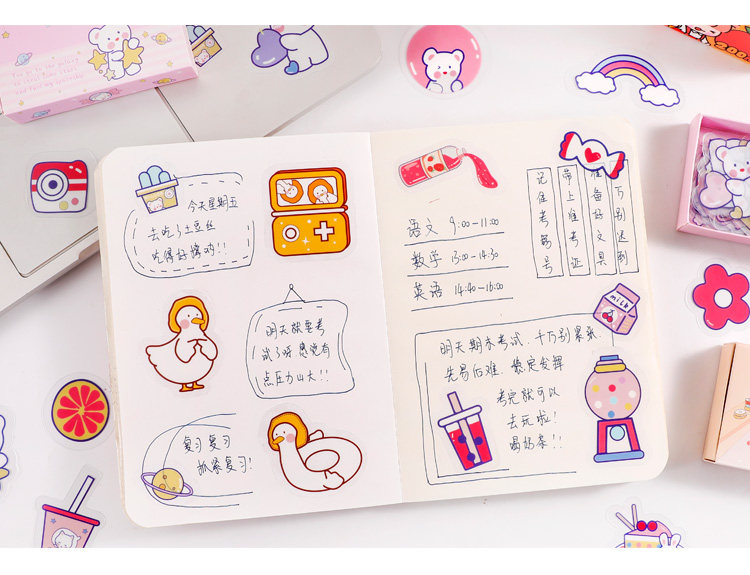 今天星期五
去吃了土豆丝
吃得好撑呐!!
明天就要考
试了呀 感觉有
点压力山大!!
复习复习
抓紧复习!
语文 9:00-11:00
数学 13:00-14:30
英语 14:40-16:00
记住考场号
带上准考证
准备好文具
万别迟到
milk
明天期末考试,千万别紧张.
先易后难 稳定发挥
考完就可以
去玩啦!
喝奶茶!!